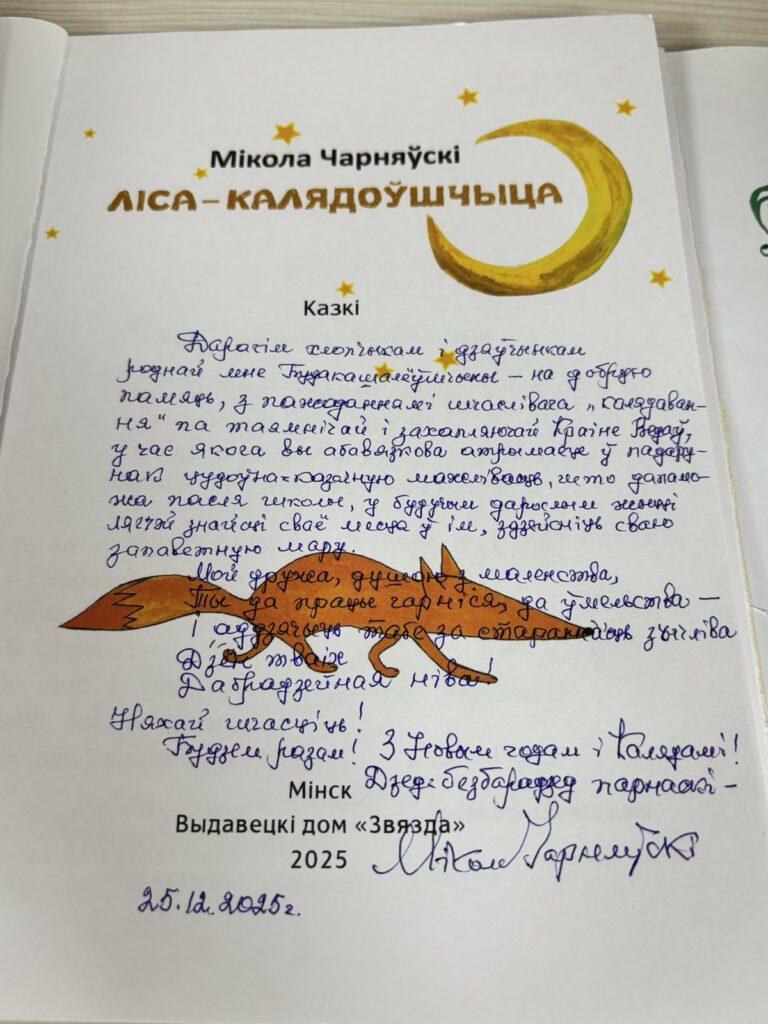 Мікола Чарняўскі
ЛІСА – КАЛЯДОЎШЧЫЦА
Казкі
Дарагім хлопчыкам і дзяўчынкам
роднай мне Буда-Кашалёўшчыны – на добрую
памяць, з пажаданнямі шчаслівага „калядаван-
ня" па таямнічай і захапляючай Краіне Ведаў,
у час якога вы абавязкова атрымаеце ў падару-
нак цудоўна-казачную магчымасць, што дапамо-
жа пасля школы, у будучым дарослым жыцці
лягчэй знайсці сваё месца ў ім, здзейсніць сваю
запаветную мару.
Мой дружа, душою з маленства,
Ты да працы гарніся, да ўмельства –
І аддзячыць табе за стараннасць зычліва
Дзён тваіх
Дабрадзейная ніва!
Няхай шчасціць!
Будзем разам! З Новым годам і Калядамі!
Дзед-безбарадзед парнаскі –
Мінск
Выдавецкі дом «Звязда»
2025
Мікола Чарняўскі
25.12.2025г.